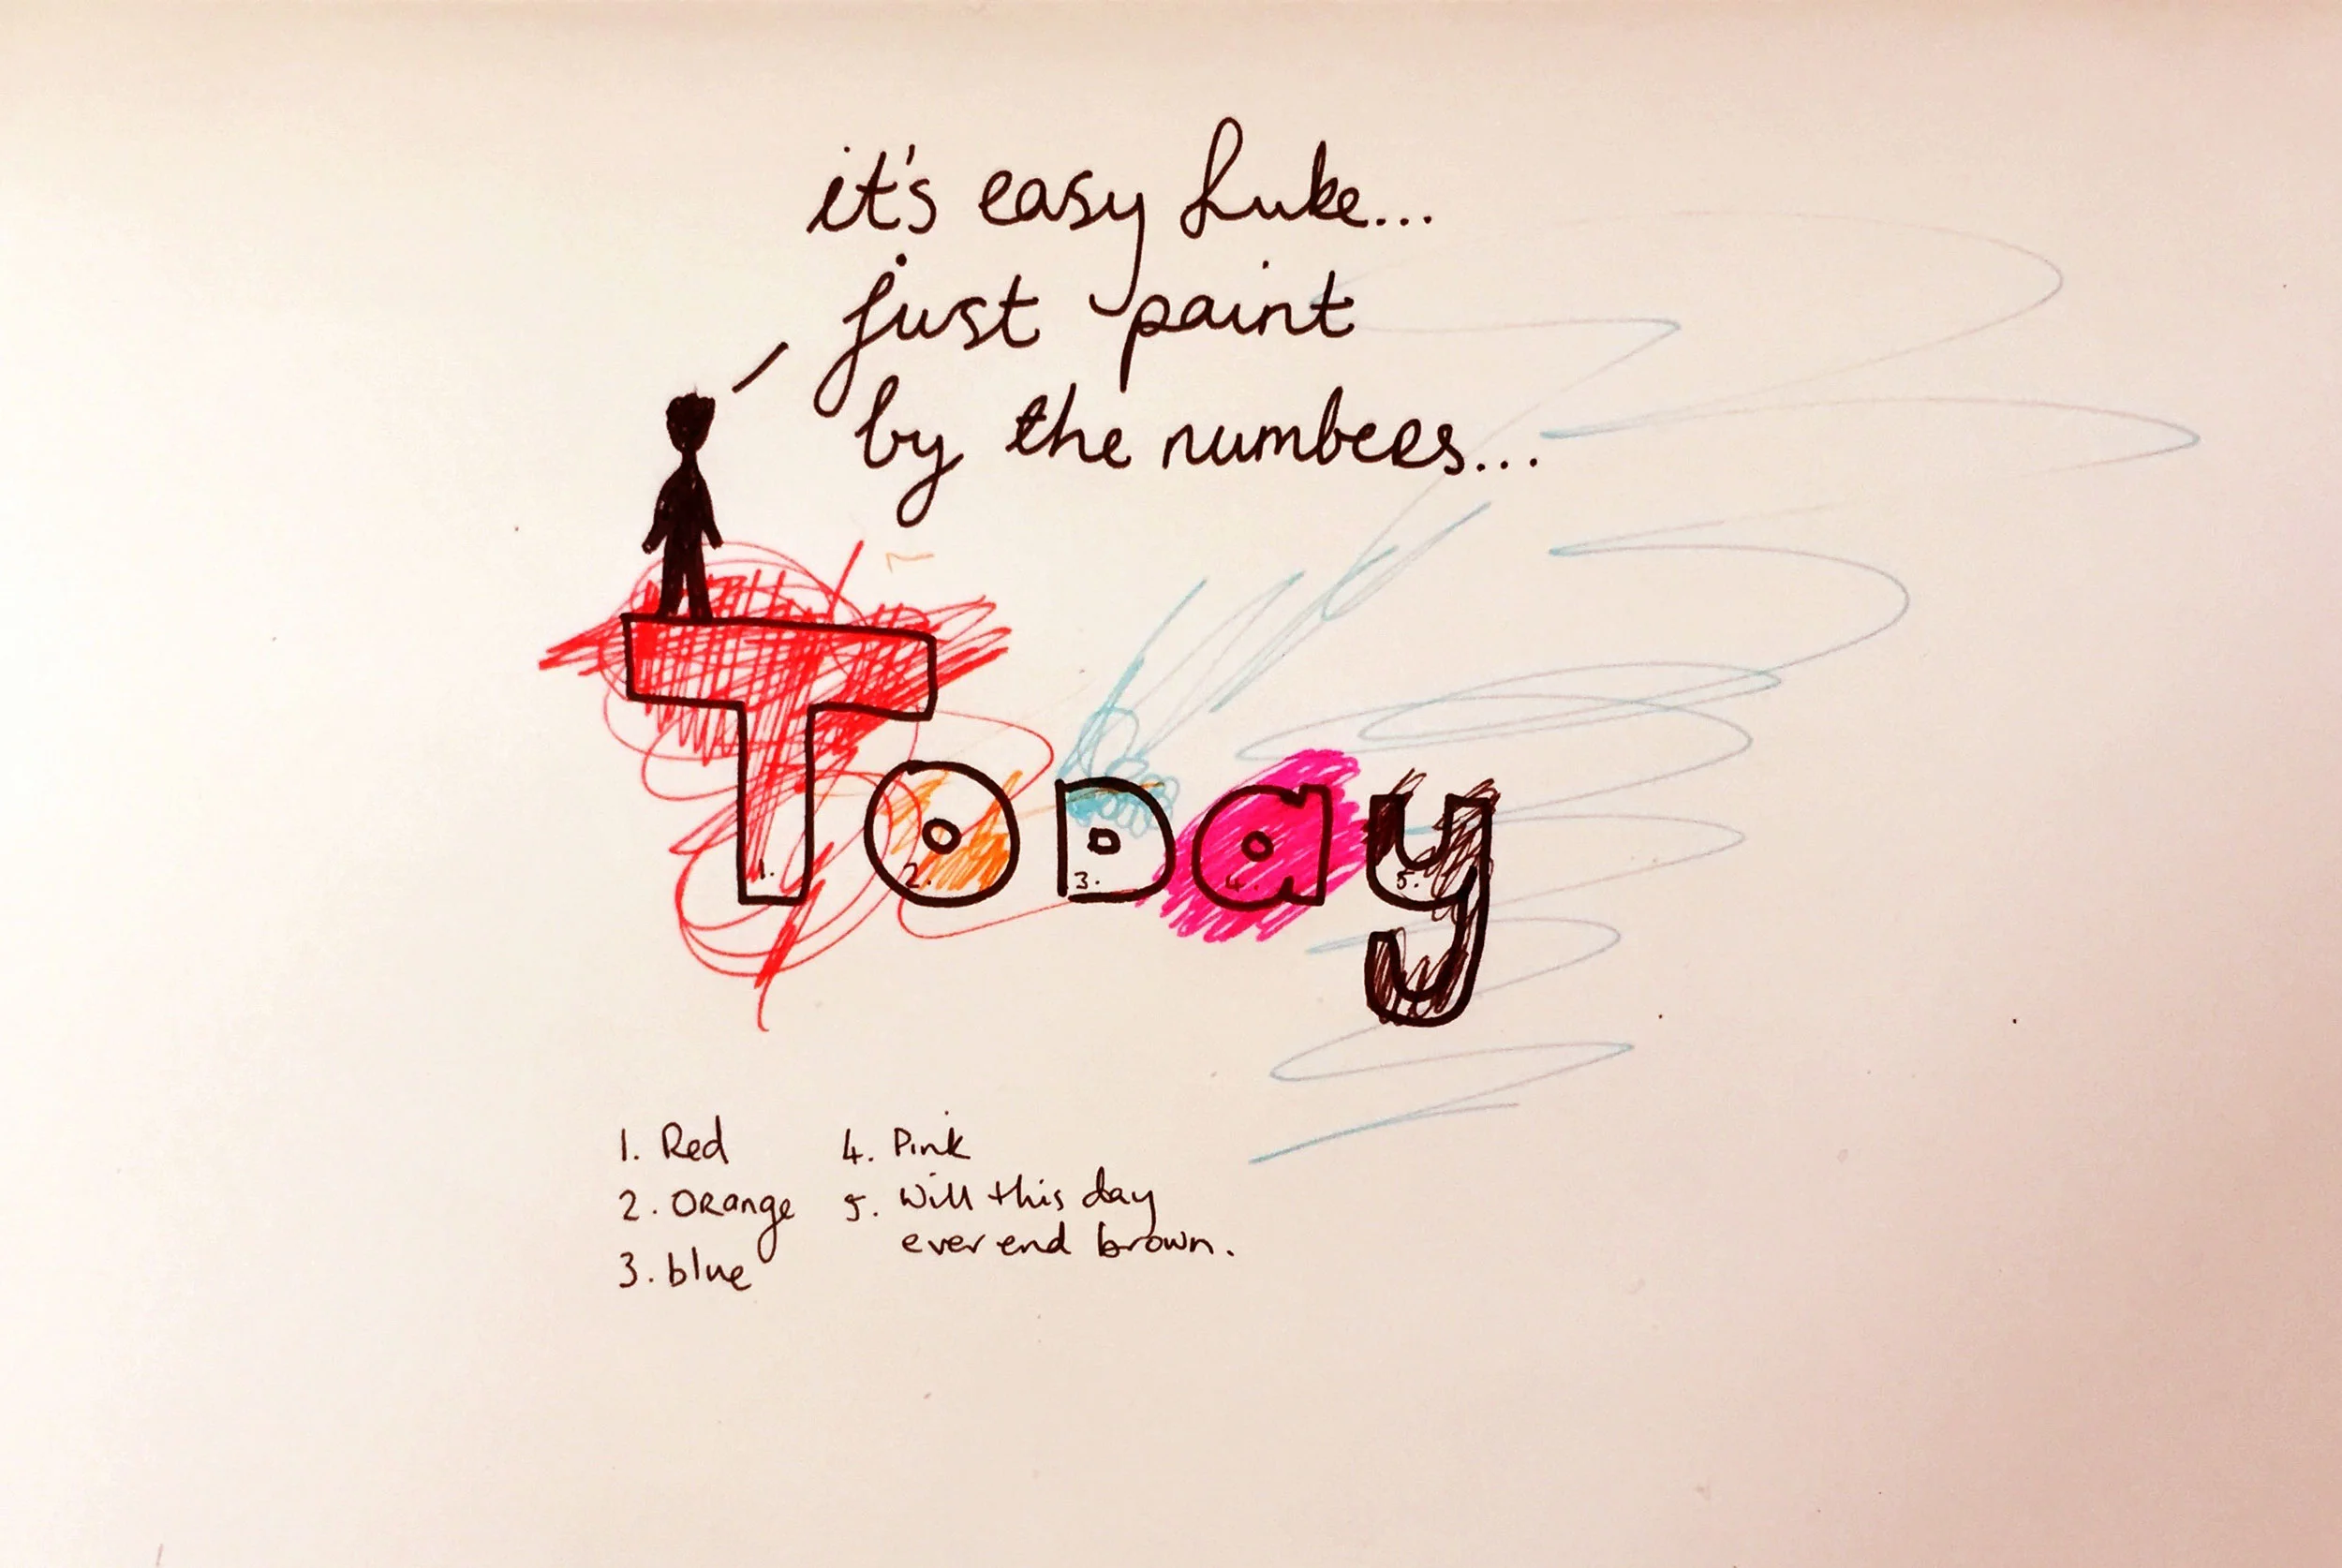 it's easy Luke...
just paint
by the numbers...
ToDay
1. 2. 3. 4. 5.
1. Red
2. Orange
3. blue
4. Pink
5. Will this day
ever end brown.